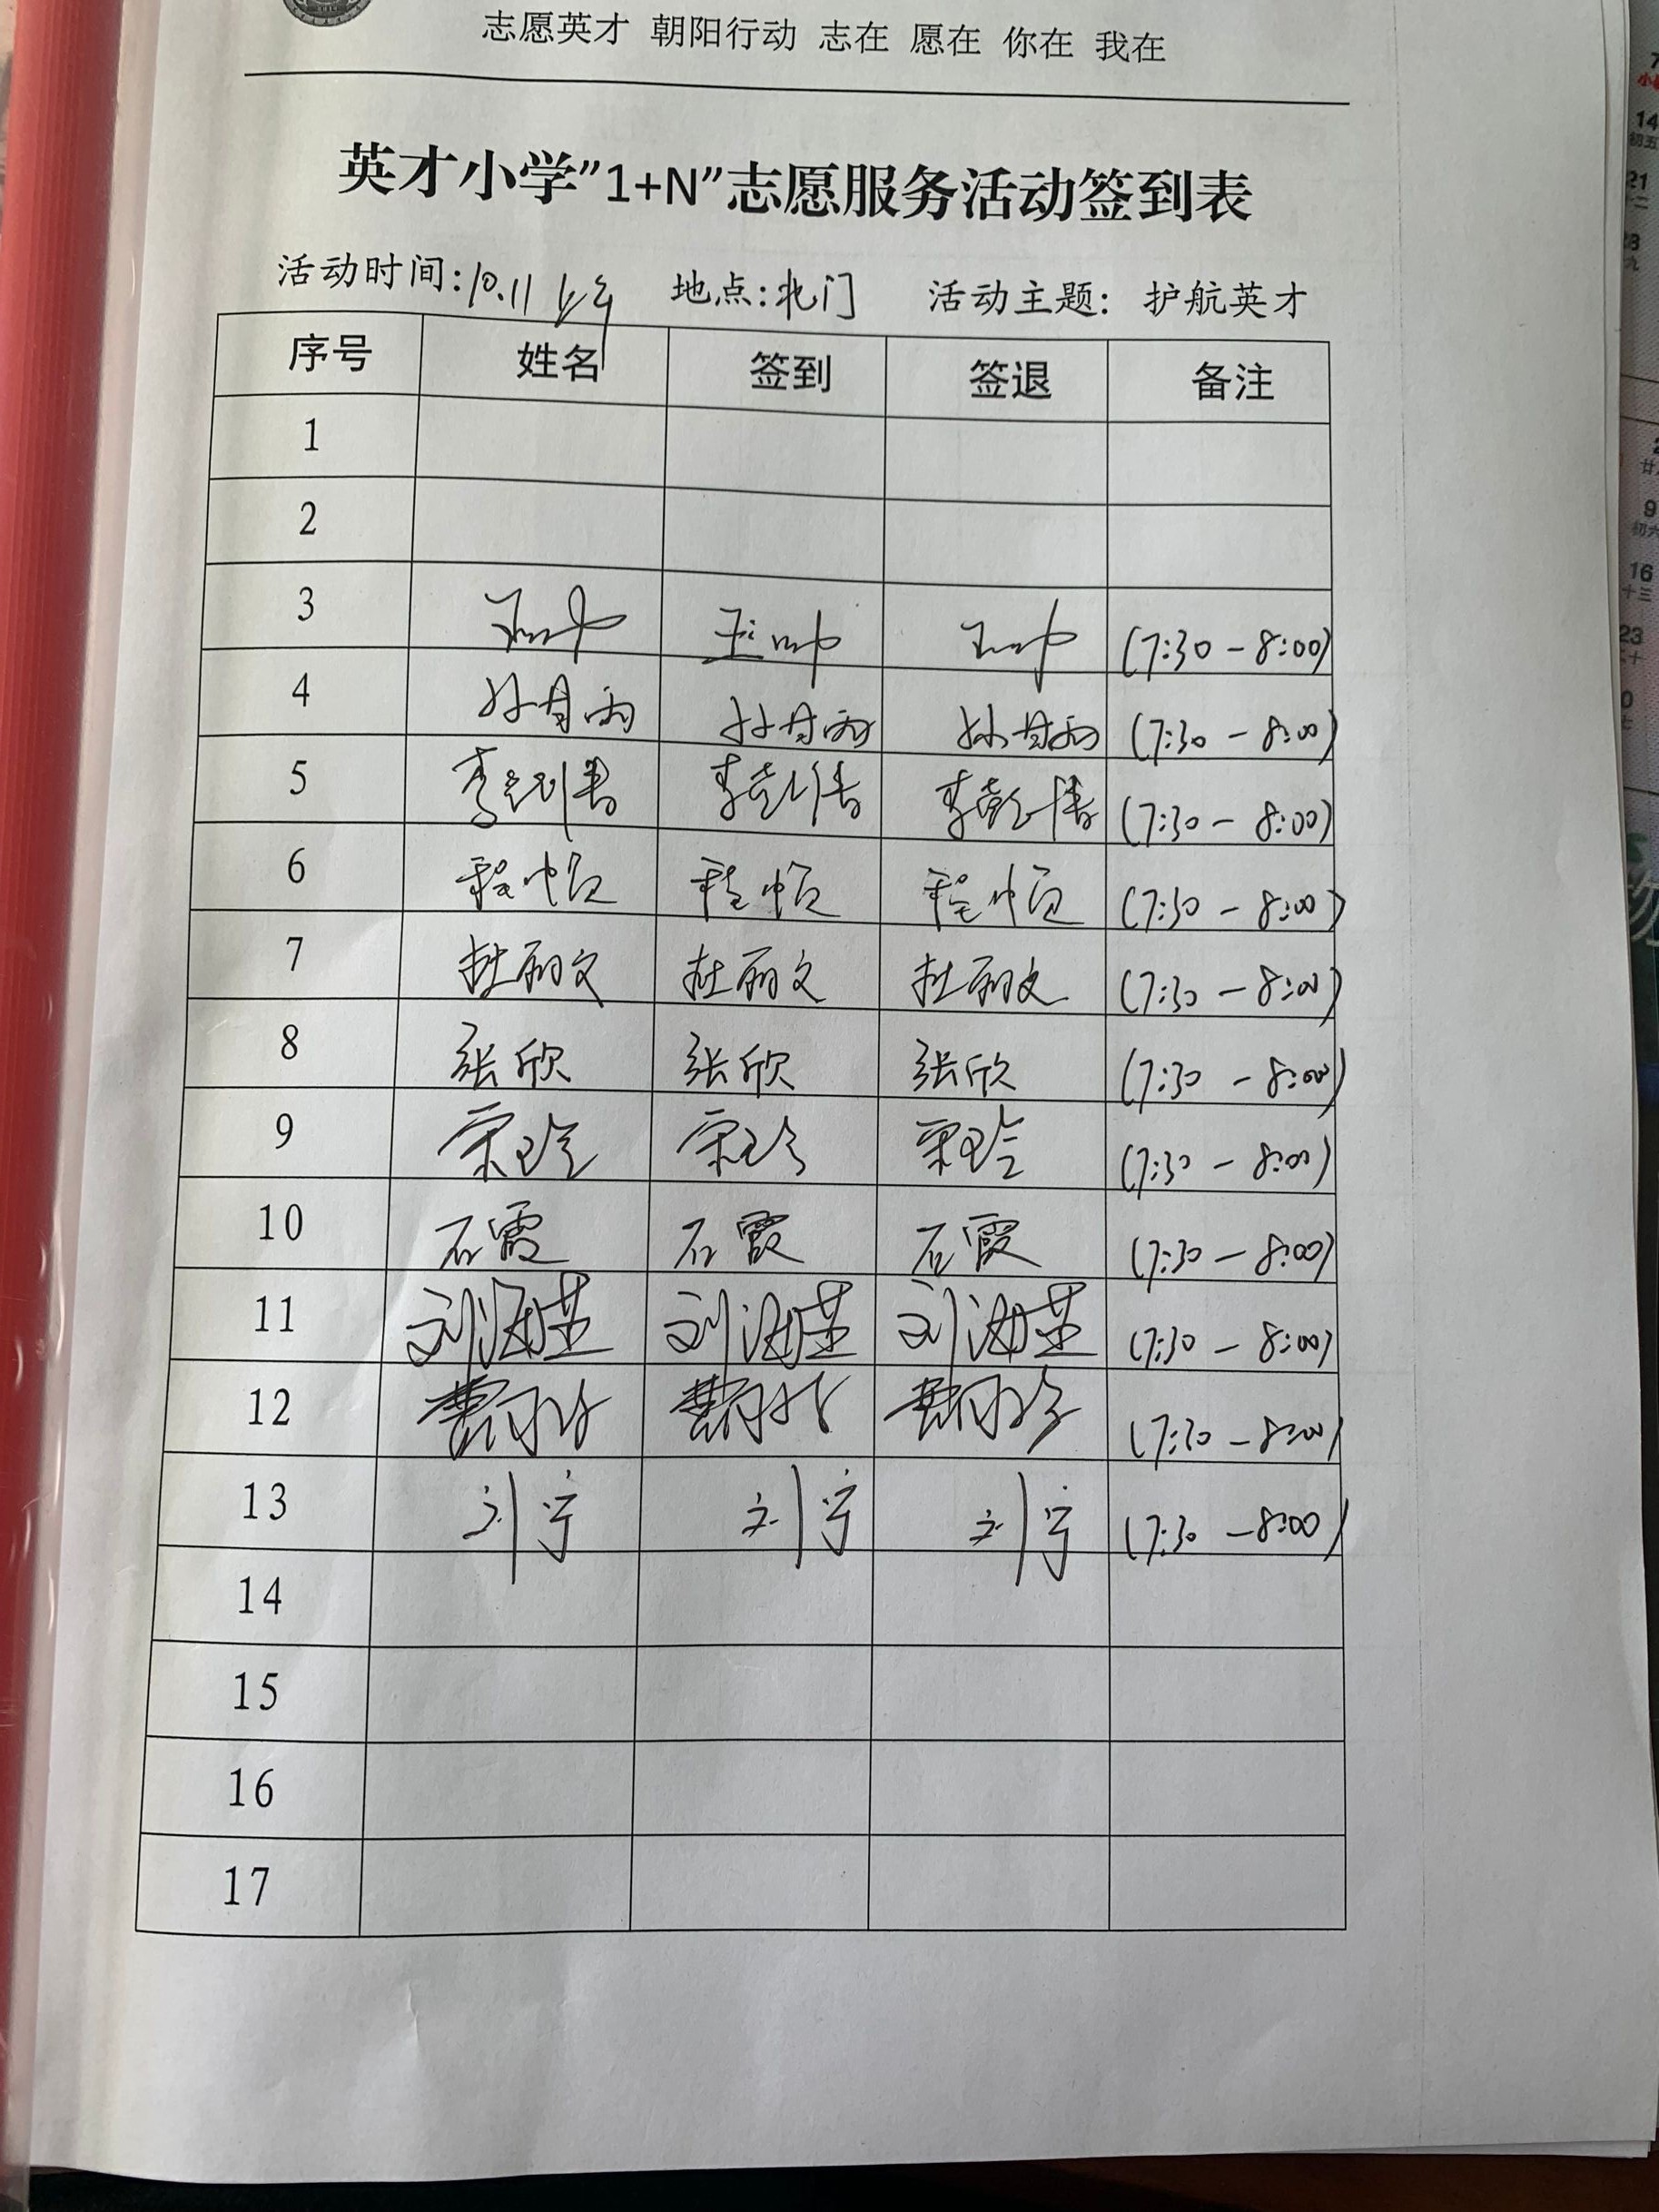 志愿英才 朝阳行动 志在 愿在 你在 我在
英才小学”1+N”志愿服务活动签到表
活动时间:10.11 上午 地点:北门 活动主题: 护航英才
序号 姓名 签到 签退 备注
1
2
3 (7:30-8:00)
4 (7:30-8:00)
5 (7:30-8:00)
6 (7:30-8:00)
7 杜丽文 杜丽文 杜丽文 (7:30-8:00)
8 张欣 张欣 张欣 (7:30-8:00)
9 宋玲 宋玲 宋玲 (7:30-8:00)
10 石霞 石霞 石霞 (7:30-8:00)
11 刘海英 刘海英 刘海英 (7:30-8:00)
12 (7:30-8:00)
13 刘宇 刘宇 刘宇 (7:30-8:00)
14
15
16
17